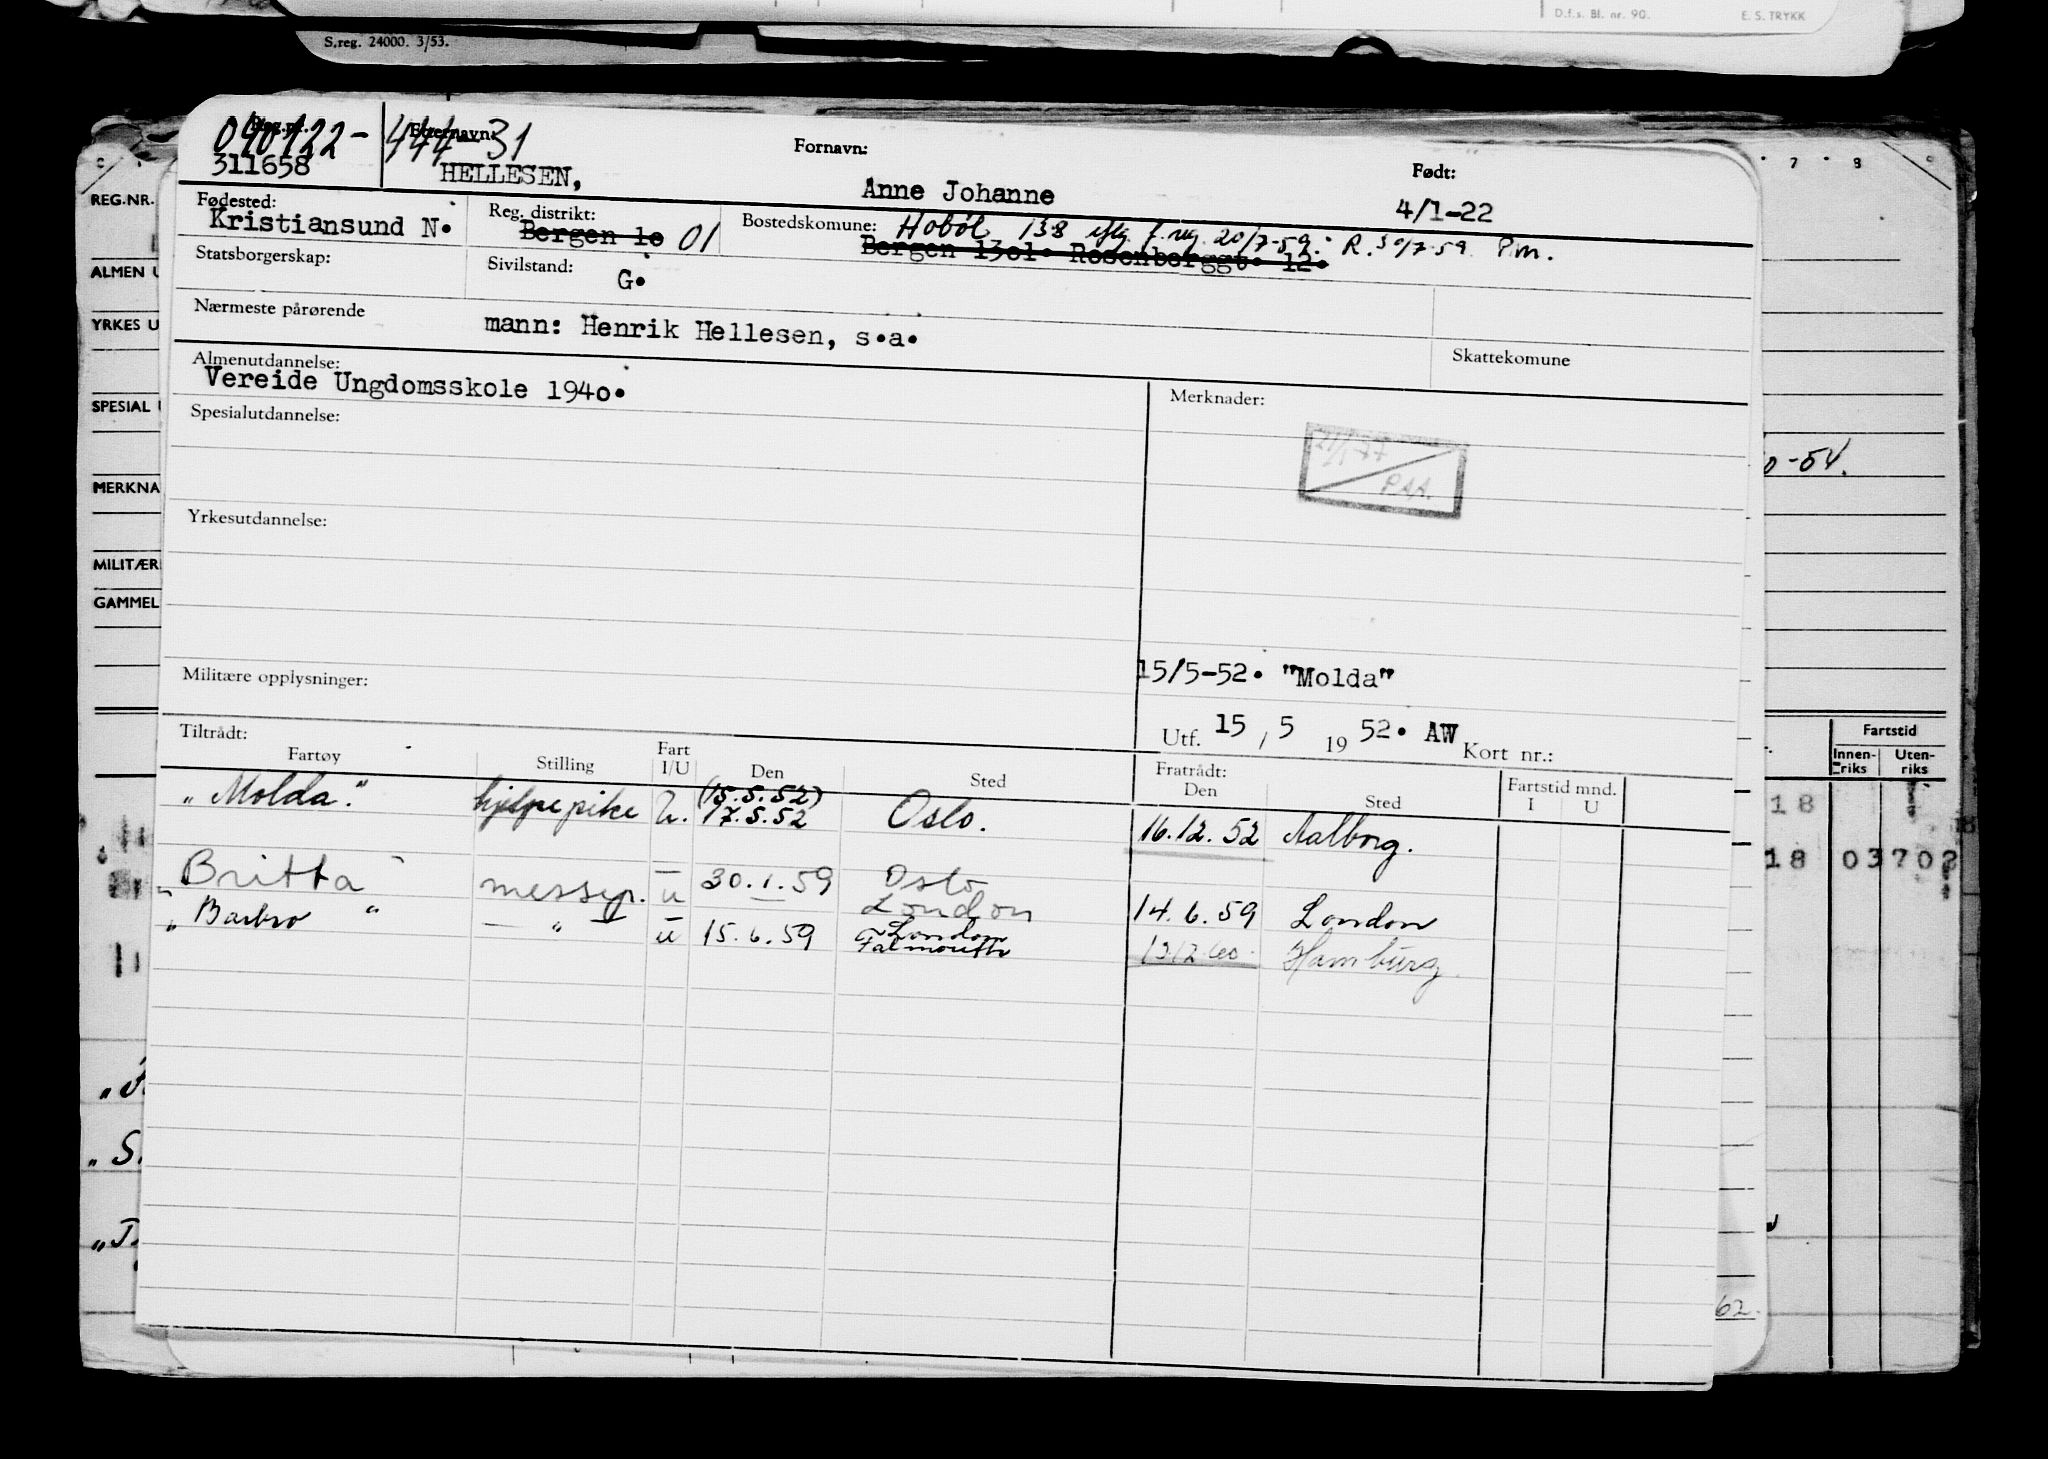 D.f.s. Bl. nr. 90. E. S. TRYKK
S.reg. 24000. 3/53.
040122-444-31
Etternavn: Fornavn: Født:
311658 HELLESEN, Anne Johanne 4/1-22
Fødested: Reg. distrikt: Bostedskomune: Hobøl 138 iflg. f.reg. 20/7-59. R. 30/7-59. P.m.
Kristiansund N. Bergen 1o 01 Bergen 13o1. Rosenberggt. 12.
Statsborgerskap: Sivilstand: G.
Nærmeste pårørende mann: Henrik Hellesen, s.a.
Skattekomune
Almenutdannelse:
Vereide Ungdomsskole 194o.
Merknader:
Spesialutdannelse:
21/1-77
PAA.
Yrkesutdannelse:
Militære opplysninger:
15/5-52. "Molda"
Utf. 15 / 5 19 52. AW Kort nr.:
Tiltrådt: Fratrådt:
Fartøy Stilling Fart I/U Den Sted Den Sted Fartstid mnd. I U
"Molda." hjelpepike U. (15.5.52) 17.5.52 Oslo. 16.12.52 Aalborg.
"Britta" messep. u 30.1.59 Oslo London 14.6.59 London
"Barbro" — " — u 15.6.59 London Falmouth 13/12 60. Hamburg.
REG.NR.
ALMEN U
YRKES U
SPESIAL U
MERKNA
MILITÆR
GAMMEL
7 8
0-54.
Fartstid
Innen-riks Uten-riks
18
18 03702
"S.
62.